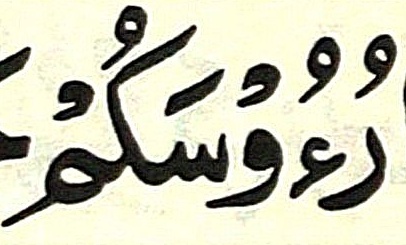 رُءُوْسَكُمْ